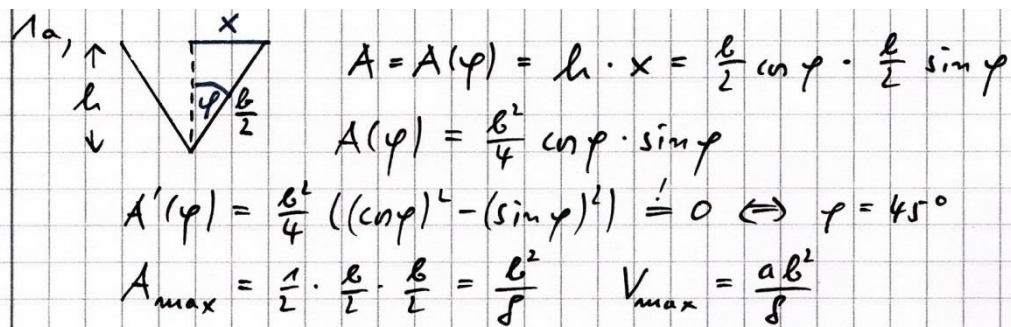 1a, x
h φ b/2
A = A(φ) = h · x = b/2 cos φ · b/2 sin φ
A(φ) = b²/4 cos φ · sin φ
A'(φ) = b²/4 ((cos φ)² - (sin φ)²) =! 0 ⇔ φ = 45°
A_max = 1/2 · b/2 · b/2 = b²/8 V_max = ab²/8